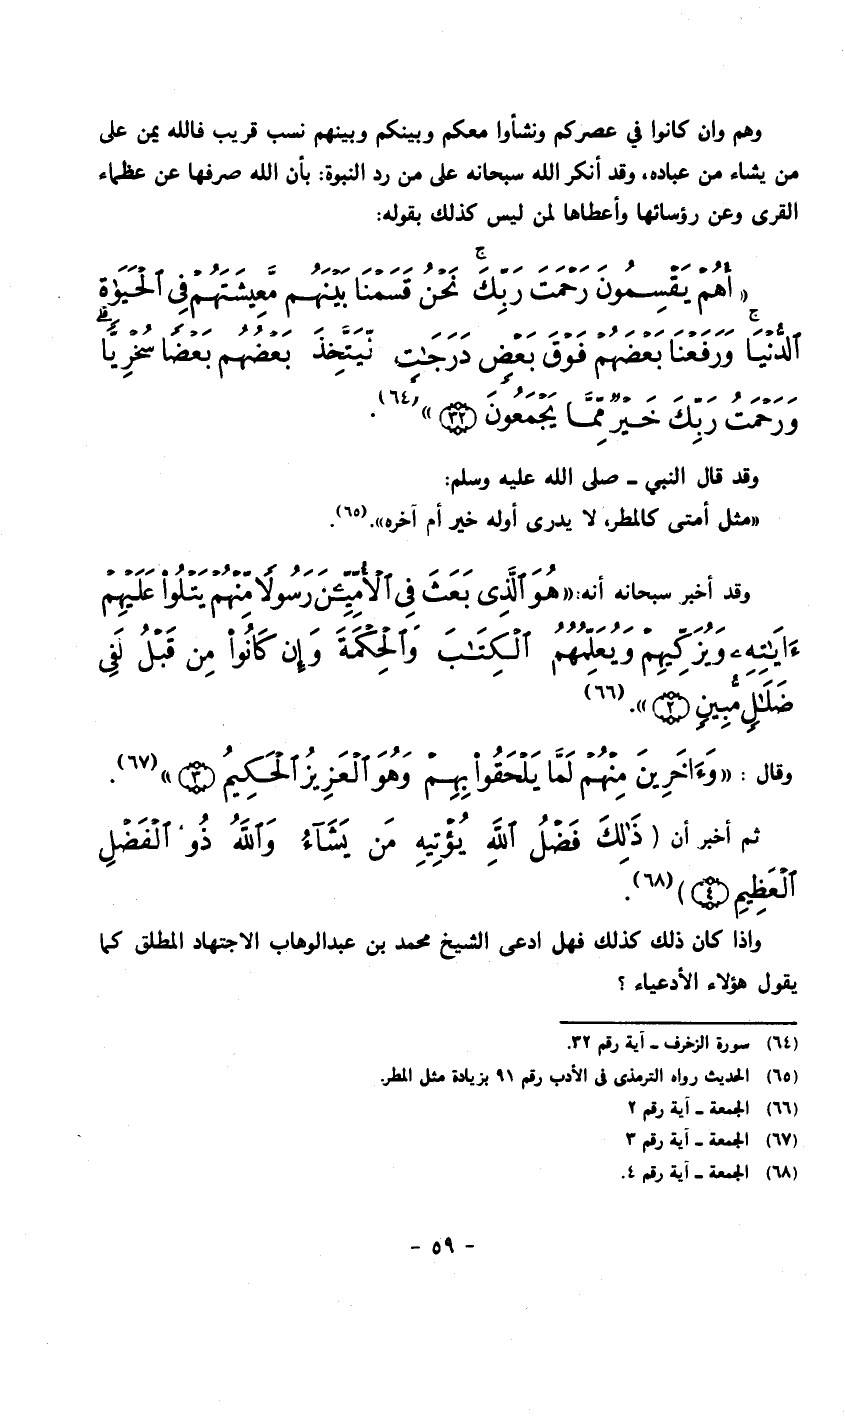 وهم وان كانوا في عصركم ونشأوا معكم وبينكم وبينهم نسب قريب فالله يمن على
من يشاء من عباده، وقد أنكر الله سبحانه على من رد النبوة: بأن الله صرفها عن عظماء
القرى وعن رؤسائها وأعطاها لمن ليس كذلك بقوله:
«أَهُمْ يَقْسِمُونَ رَحْمَتَ رَبِّكَ ۚ نَحْنُ قَسَمْنَا بَيْنَهُم مَّعِيشَتَهُمْ فِي ٱلْحَيَوٰةِ
ٱلدُّنْيَا ۚ وَرَفَعْنَا بَعْضَهُمْ فَوْقَ بَعْضٍ دَرَجَٰتٍ لِّيَتَّخِذَ بَعْضُهُم بَعْضًا سُخْرِيًّا ۗ
وَرَحْمَتُ رَبِّكَ خَيْرٌ مِّمَّا يَجْمَعُونَ ﴿٣٢﴾» (٦٤).
وقد قال النبي ـ صلى الله عليه وسلم:
«مثل أمتى كالمطر، لا يدرى أوله خير أم آخره». (٦٥).
وقد أخبر سبحانه أنه: «هُوَ ٱلَّذِى بَعَثَ فِى ٱلْأُمِّيِّـۧنَ رَسُولًا مِّنْهُمْ يَتْلُوا۟ عَلَيْهِمْ
ءَايَٰتِهِۦ وَيُزَكِّيهِمْ وَيُعَلِّمُهُمُ ٱلْكِتَٰبَ وَٱلْحِكْمَةَ وَإِن كَانُوا۟ مِن قَبْلُ لَفِى
ضَلَٰلٍ مُّبِينٍ ﴿٢﴾». (٦٦)
وقال : «وَءَاخَرِينَ مِنْهُمْ لَمَّا يَلْحَقُوا۟ بِهِمْ وَهُوَ ٱلْعَزِيزُ ٱلْحَكِيمُ ﴿٣﴾» (٦٧).
ثم أخبر أن (ذَٰلِكَ فَضْلُ ٱللَّهِ يُؤْتِيهِ مَن يَشَآءُ وَٱللَّهُ ذُو ٱلْفَضْلِ
ٱلْعَظِيمِ ﴿٤﴾) (٦٨).
واذا كان ذلك كذلك فهل ادعى الشيخ محمد بن عبدالوهاب الاجتهاد المطلق كما
يقول هؤلاء الأدعياء ؟
(٦٤) سورة الزخرف ـ آية رقم ٣٢.
(٦٥) الحديث رواه الترمذى فى الأدب رقم ٩١ بزيادة مثل المطر.
(٦٦) الجمعة ـ آية رقم ٢
(٦٧) الجمعة ـ آية رقم ٣
(٦٨) الجمعة ـ آية رقم ٤.
- ٥٩ -